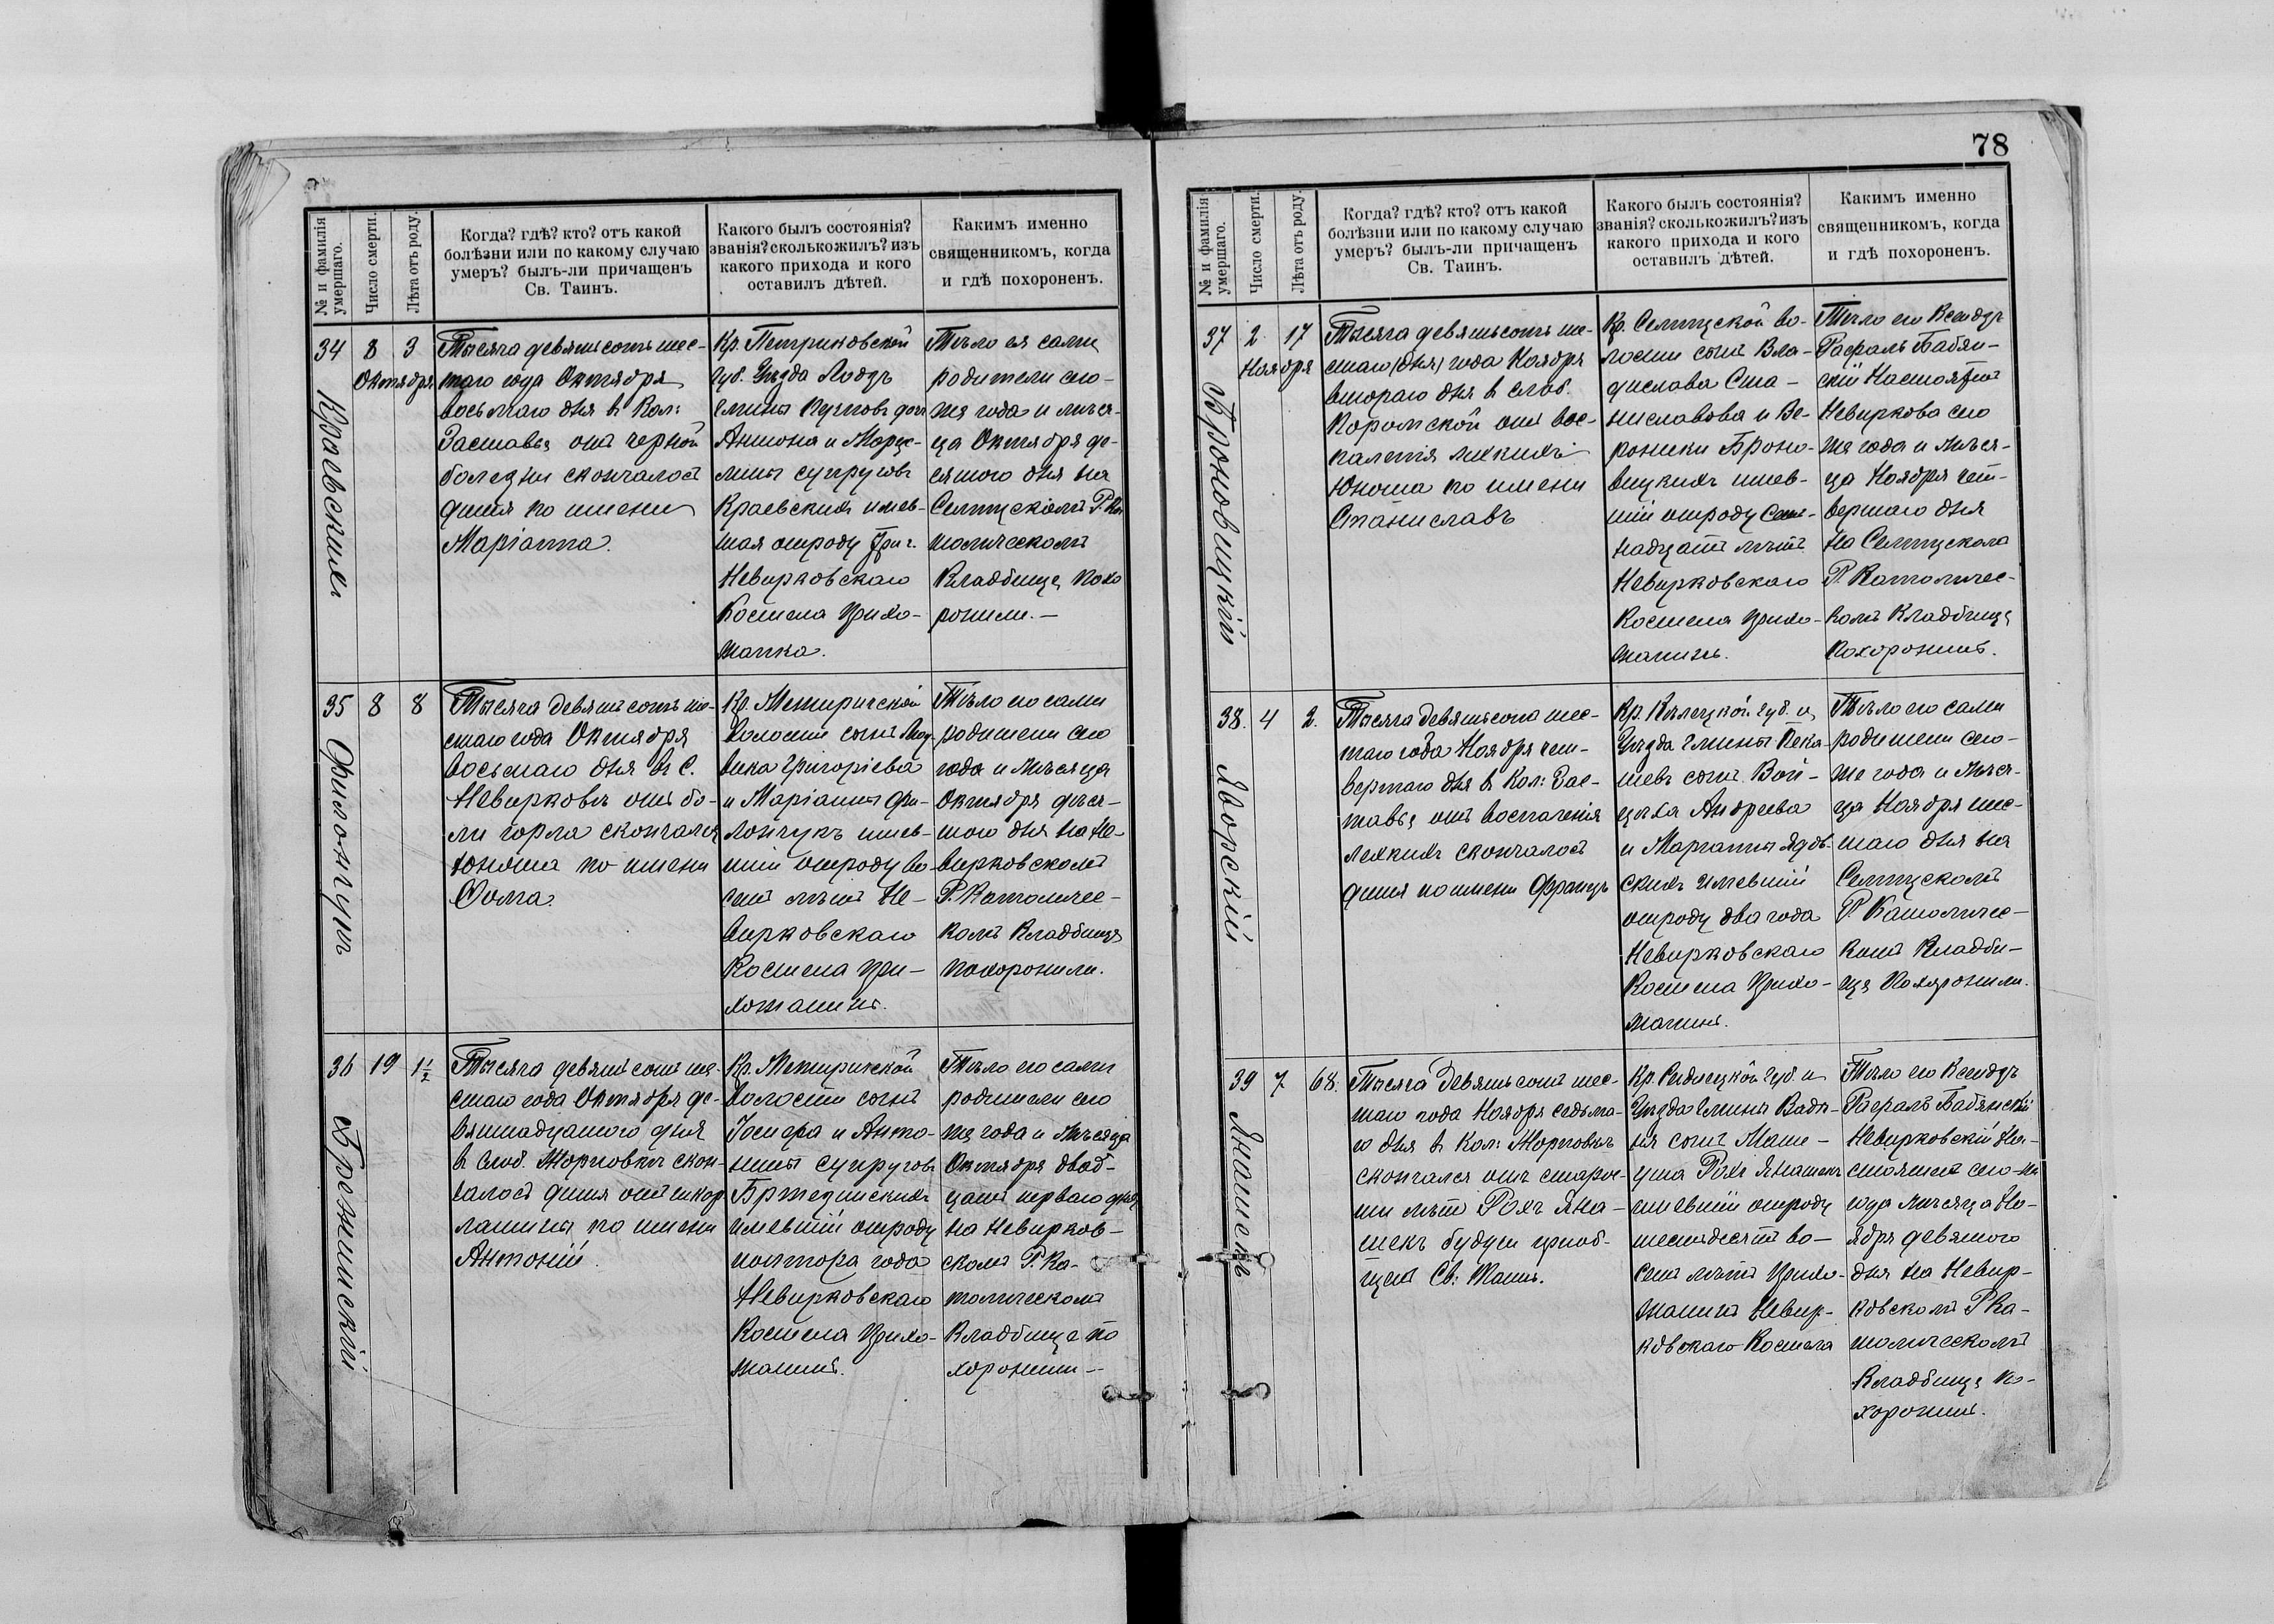 № и фамилія
умершаго.
Число смерти.
Лѣта отъ роду.
Когда? гдѣ? кто? отъ какой
болѣзни или по какому случаю
умеръ? былъ-ли причащенъ
Св. Таинъ.
Какого былъ состоянія?
званія? сколько жилъ? изъ
какого прихода и кого
оставилъ дѣтей.
Какимъ именно
священникомъ, когда
и гдѣ похороненъ.
34
Краевская
8
Октября
3
Тысяча девятьсотъ шес-
таго года Октября
восьмаго дня въ Кол:
Заставье отъ черной
болезни скончалось
дитя по имени
Маріанна.
Кр. Петриковской
Губ. Уѣзда Лодзь
гмины
Антона и Марце-
лины супруговъ
Краевскихъ имев-
шая отроду три г.
Невирковскаго
Костела прихо-
жанка.
Тѣло ея сами
родители сего-
же года и мѣся-
ца Октября де-
сятого дня на
Селищскомъ Р. Ка
толическомъ
Кладбище похо
ронили. —
35
Филончукъ
8
8
Тысяча девятьсотъ ше-
стаго года Октября
восьмаго дня въ с.
Невирковъ отъ бо-
ли горла скончался
юноша по имени
Фома.
Кр. Межиричской
Волости сынъ Лю
вика Григоріева
и Маріанны Фи-
лончукъ имев-
шій отроду во-
семь лѣтъ Не-
вирковскаго
Костела при-
хожанинъ.
Тѣло его сами
родители сего
года и мѣсяца
Октября деся-
того дня на Не-
вирковскомъ
Р. Католичес-
комъ Кладбище
похоронили.
36
Брежинскій
19
1½
Тысяча девятьсотъ ше-
стаго года Октября де-
вятнадцатого дня
в Слоб. Жорновка скон-
чалось дитя отъ шкар
латины по имени
Антоній.
Кр. Межиричской
Волости сынъ
Іосифа и Анто-
нины супруговъ
Бржезинскихъ
имевшій отроду
полтора года
Невирковскаго
Костела прихо-
жанинъ.
Тѣло его сами
родители сего
же года и мѣсяца
Октября двад-
цать перваго дня
на Невирков-
скомъ Р. Ка-
толическомъ
Кладбище по
хоронили —
78
№ и фамилія
умершаго.
Число смерти.
Лѣта отъ роду.
Когда? гдѣ? кто? отъ какой
болѣзни или по какому случаю
умеръ? былъ-ли причащенъ
Св. Таинъ.
Какого былъ состоянія?
званія? сколько жилъ? изъ
какого прихода и кого
оставилъ дѣтей.
Какимъ именно
священникомъ, когда
и гдѣ похороненъ.
37
Броновицкій
2
Ноября
17
Тысяча девятьсотъ ше-
стаго (дня) года Ноября
втораго дня в слоб.
Коромской отъ вос-
паленія легкихъ
юноша по имени
Станиславъ
Кр. Селищской во-
лости сынъ Вла-
дислава Ста-
ниславова и Ве-
роники Броно-
вицкихъ имев-
шій отроду сем-
надцать лѣтъ
Невирковскаго
Костела прихо-
жанинъ.
Тѣло его Ксендзъ
Рафалъ Бабян-
скій Настоятель
Невиркова сего
же года и мѣся-
ца Ноября чет-
вертаго дня
на Селищскомъ
Р. Католичес-
комъ Кладбище
похоронилъ.
38.
Яворскій
4
2.
Тысяча девятьсотъ шес-
таго года Ноября чет-
вертаго дня в Кол: Зас-
тавье отъ воспаленія
легкихъ скончалось
дитя по имени Францъ
Кр. Кѣлецкой губ. и
Уѣзда гмины Пека-
шевъ сынъ Вой-
цѣха Андреева
и Маріанны
скихъ имевшій
отроду два года
Невирковскаго
Костела прихо-
жанинъ.
Тѣло его сами
родители сего-
же года и мѣся-
ца Ноября шес-
таго дня на
Селищскомъ
Р. Католичес-
комъ Кладби-
ще похоронили.
39
Яношекъ
7
68.
Тысяча девятьсотъ шес-
таго года Ноября седьма-
го дня в Кол: Жорновкѣ
скончался отъ старос-
ти лѣтъ Рохъ Яна-
шекъ будучи пріоб-
щенъ Св: Таинъ.
Кр. губ. и
Уѣзда гмины
сынъ Мате-
уша Рохъ Янашекъ
имевшій отроду
шестьдесятъ во-
семь лѣтъ прихо-
жанинъ Невир-
ковскаго Костела
Тѣло его Ксендзъ
Рафалъ Бабянскій
Невирковскій На-
стоятель сего-же
года мѣсяца Но-
ября девятого
дня на Невир-
ковскомъ Р Ка-
толическомъ
Кладбище по-
хоронилъ.